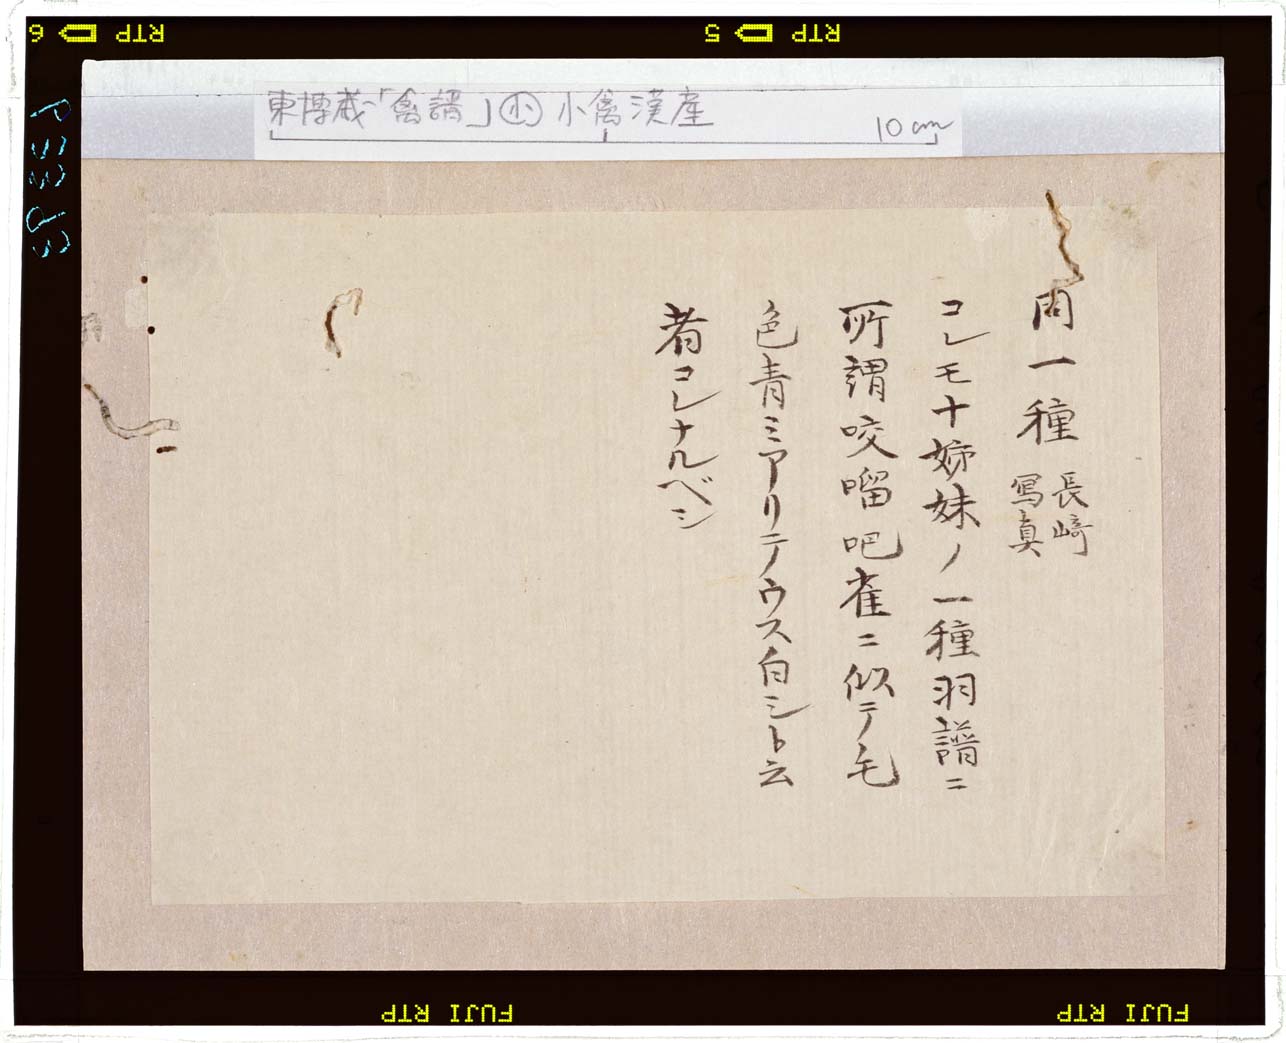 東博蔵「禽譜」㊉小禽漢産
10cm
同一種 長崎
写真
コレモ十姉妹ノ一種羽譜ニ
所謂咬𠺕吧雀ニ似テ毛
色青ミアリテウス白シト云
者コレナルベシ
RTP 6
RTP 5
FUJI RTP
FUJI RTP